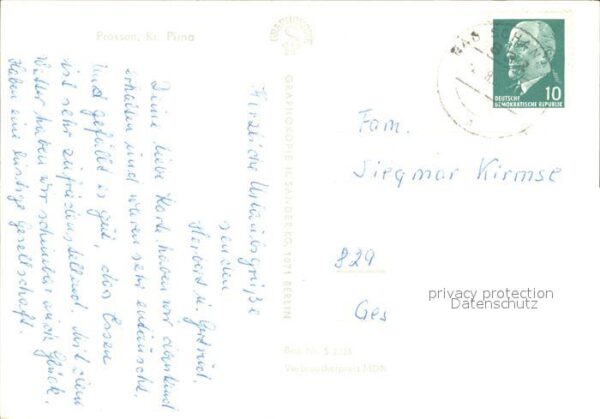 Prossen, Kr. Pirna
Herzliche Urlaubsgrüße
senden
Herbert u. Gertrud.
Deine liebe Karte haben wir dankend
erhalten und waren sehr enttäuscht.
Uns gefällt es gut, das Essen
ist sehr zufriedenstellend. Mit dem
Wetter haben wir scheinbar auch Glück.
Haben eine lustige Gesellschaft.
GRAPHOKOPIE H. SANDER KG, 1071 BERLIN
Best.-Nr. S
Verbraucherpreis MDN
BAD SCHAN
DEUTSCHE
DEMOKRATISCHE REPUBLIK
10
Fam.
Siegmar Kirmse
829
Ges
privacy protection
Datenschutz